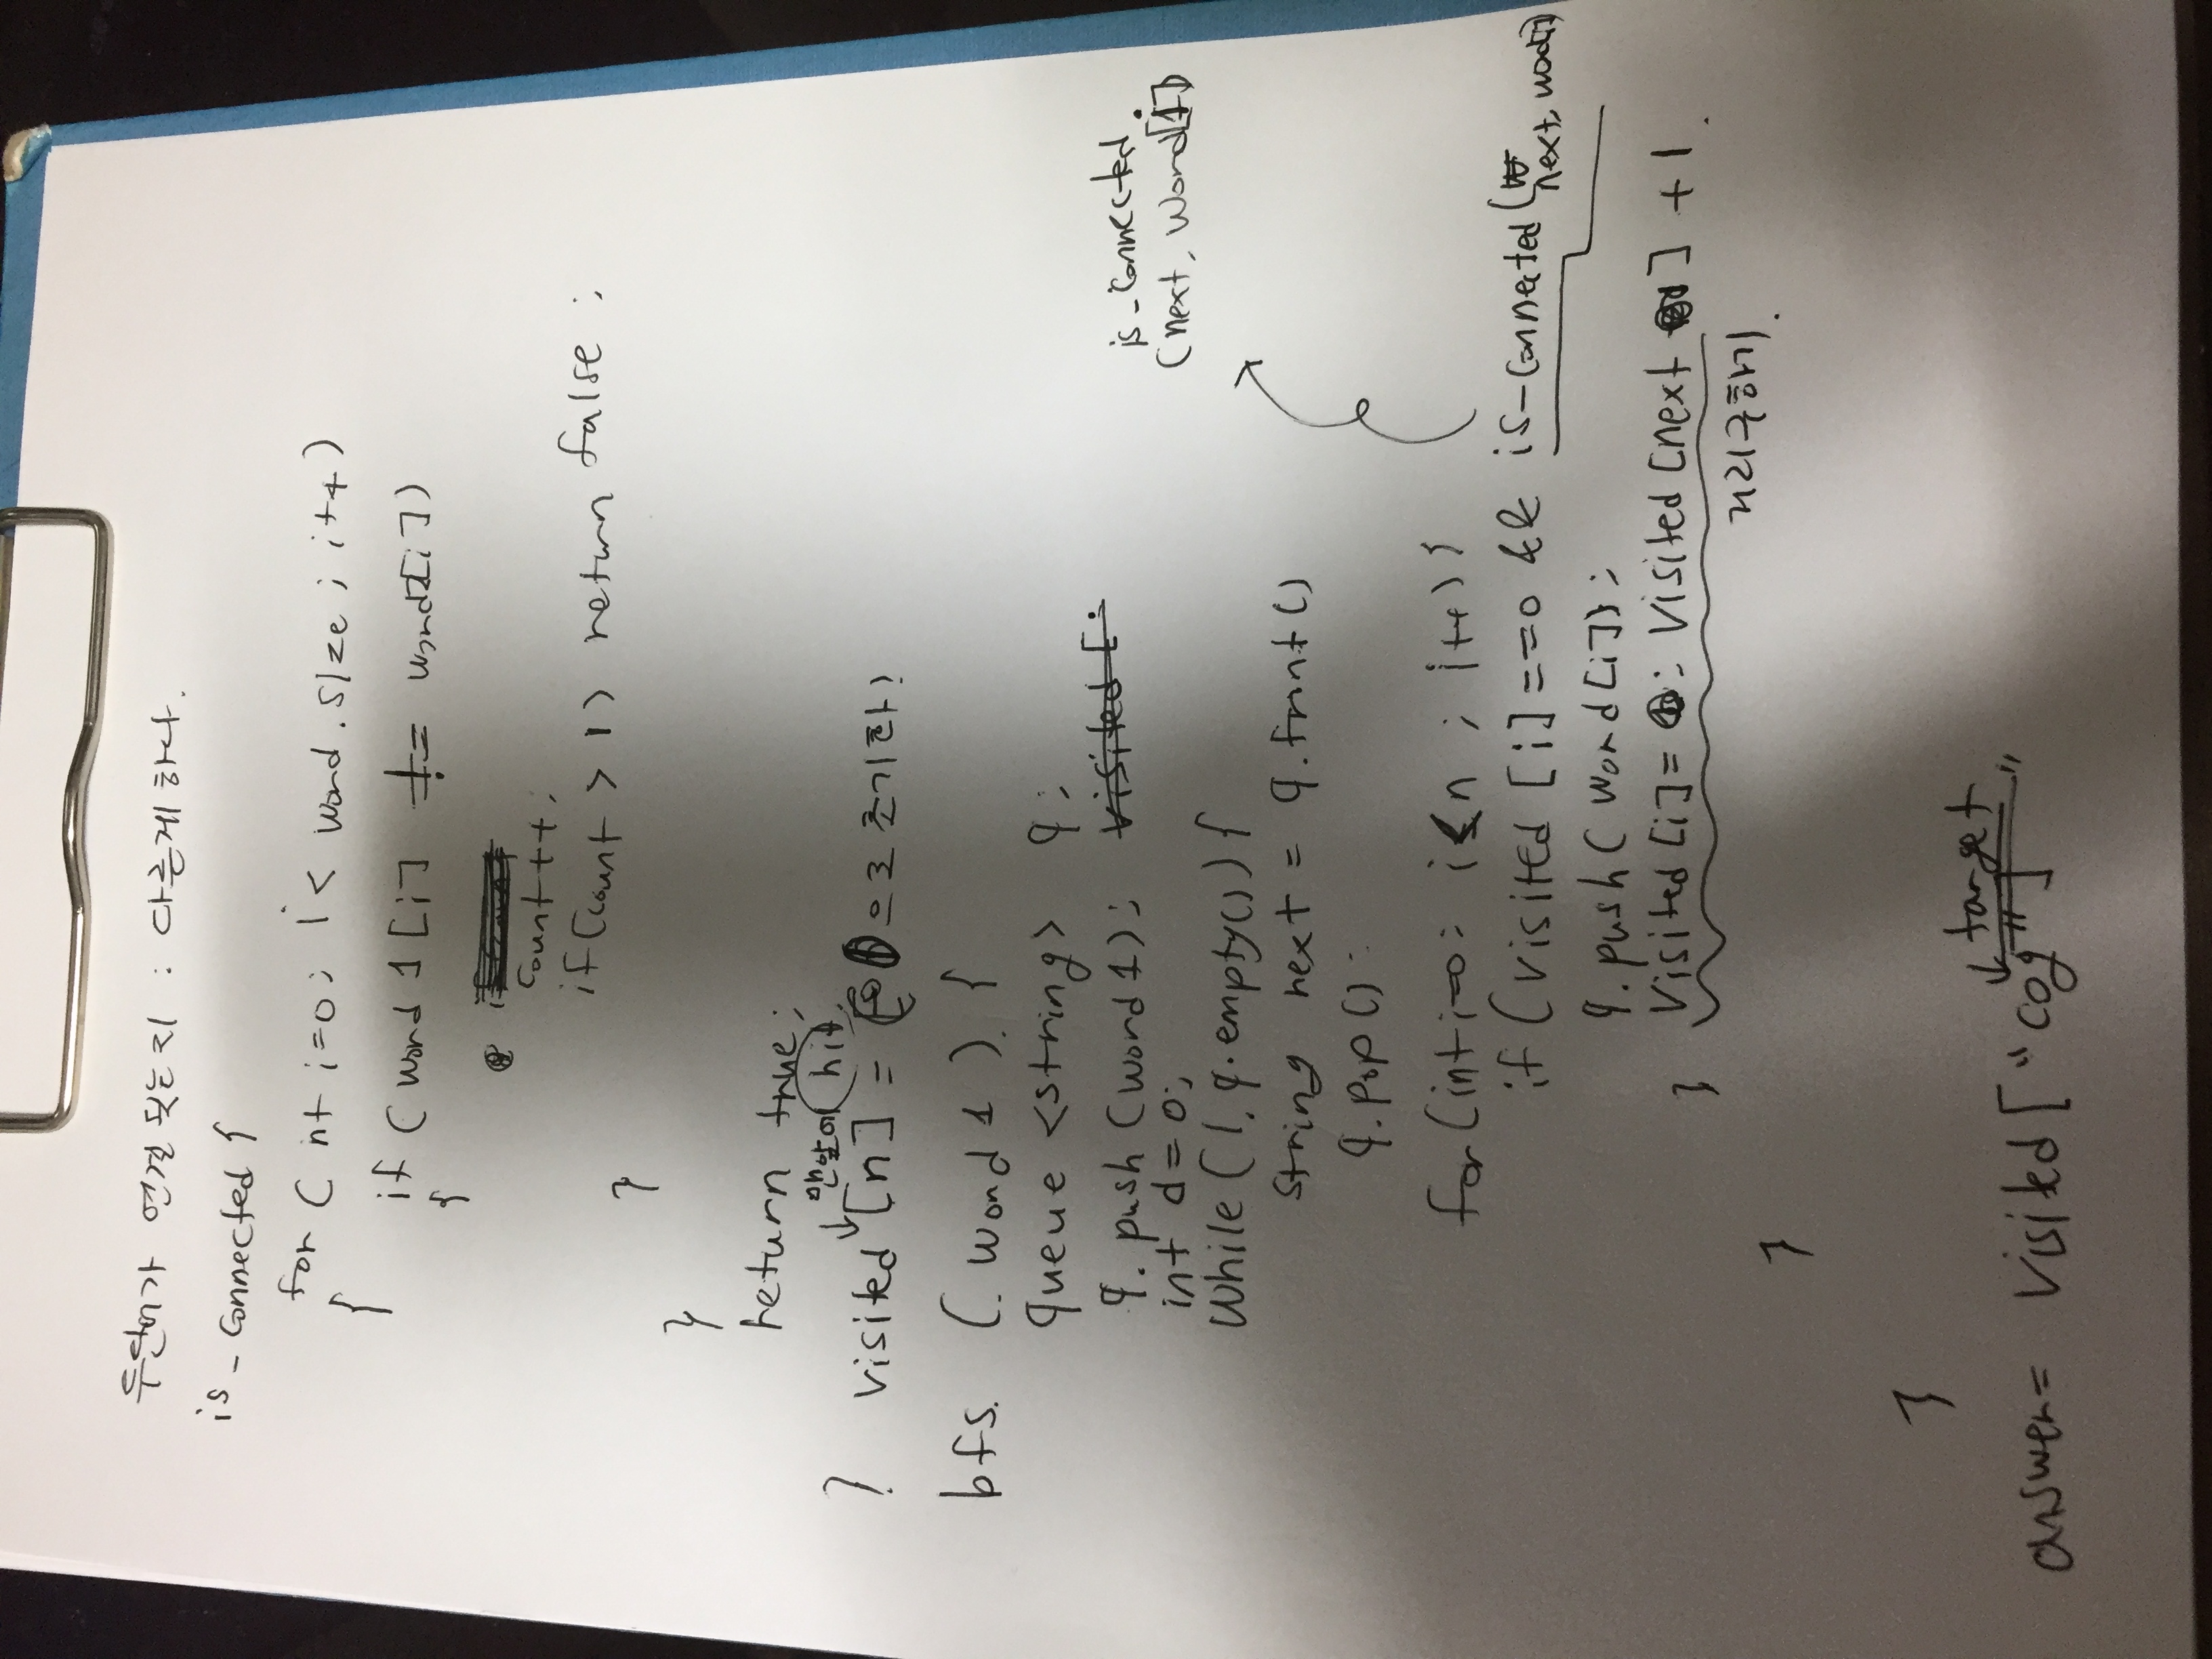 두단어가 연결 됐는지 : 다른게 하나.
is_connected {
for ( int i=0; i< word.size ; i++)
{
if ( word 1 [i] != word2[i])
{
count ++;
if(count > 1) return false ;
}
}
return true;
맨앞에 hit.
} visited [n] = 0으로 초기화!
bfs. ( word 1 ) {
queue <string> q;
q. push (word 1); visited [i
int d=0;
is_connected.
(next, word[i])
while ( !. q.empty()) {
string next = q.front()
q.pop() :
for (int i=0; i<n ; i++) {
if ( visited [i]==0 && is_connected (
next, word[i])
q.push( word[i]);
} visited [i]= visited [next ] + 1.
거리구하기.
}
}
target
answer= visited [ "cog" ] "